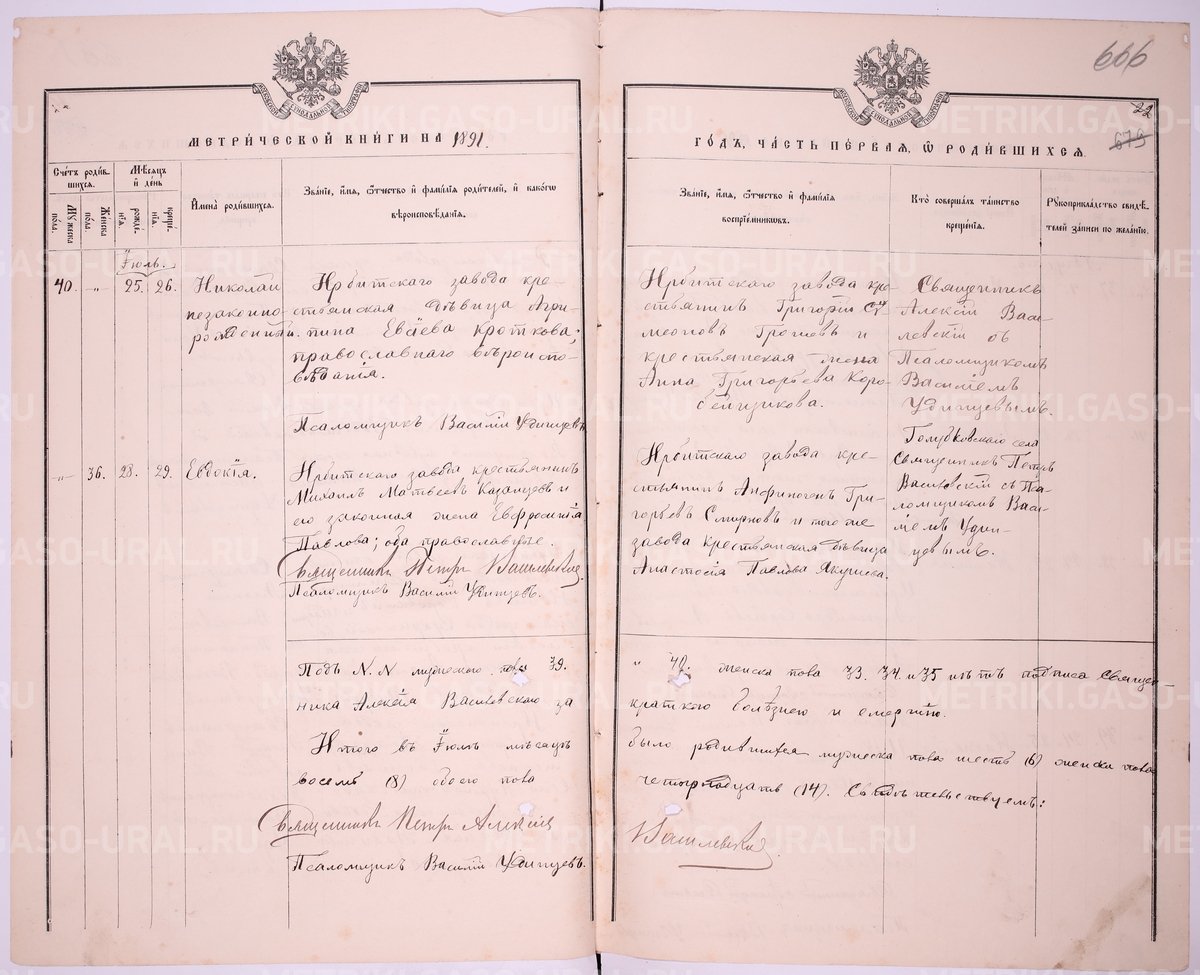 666
22
679
МЕТРИЧЕСКОЙ КНИГИ НА 1891.
ГОДЪ, ЧАСТЬ ПЕРВАЯ, Ѡ РОДИВШИХСЯ.
Счетъ родившихся.
Мужеска пола.
Женска пола.
Мѣсяцъ и день
рожденїя.
крещенїя.
Имена родившихся.
Званїе, имя, ѿчество и фамилїя родителей, и какогѡ вѣроисповѣданїя.
Званїе, имя, ѿчество и фамилїя воспрїемниковъ.
Кто совершалъ таинство крещенїя.
Рукоприкладство свидѣтелей записи по желанїю.
Іюль.
40. „ 25. 26. Николай
незаконно-
рожденный.
Ирбитскаго завода кре-
стьянская дѣвица Агри-
пина Евсіева Кроткова;
православнаго вѣроиспо-
вѣданія.
Псаломщикъ Василій Удинцевъ
Ирбитскаго завода кре-
стьянинъ Григорій Си-
меоновъ и
крестьянская жена
Анна Григорьева Коро-
бейщикова.
Священникъ
Алексій Васи-
левскій съ
Псаломщикомъ
Василіемъ
Удинцевымъ.
„ 36. 28. 29. Евдокія.
Ирбитскаго завода крестьянинъ
Михаилъ Матвеевъ Казанцевъ и
его законная жена Евфросинія
Павлова; оба православные.
Священникъ Петръ Василевскій
Псаломщикъ Василій Удинцевъ.
Ирбитскаго завода кре-
стьянинъ Анфиногенъ Гри-
горьевъ Смирновъ и того же
завода крестьянская дѣвица
Анастасія Павлова Якушева.
Голубковскаго села
Священникъ Петръ
Василевскій съ Пса-
ломщикомъ Васи-
ліемъ Удин-
цевымъ.
Подъ N.N мужескаго пола 39.
„ 40. женска пола 33. 34. и 35 нѣтъ подписа Священ-
ника Алексѣя Василевскаго за
краткою болѣзнею и смертію.
Итого въ Іюлѣ мѣсяцѣ
было родившихся мужеска пола шесть (6) женска пола
восемь (8) обоего пола
четырнадцать (14). Свидѣтельствуемъ:
Священникъ Петръ Алексіев
Василевскій
Псаломщикъ Василій Удинцевъ.
METRIKI.GASO-URAL.RU